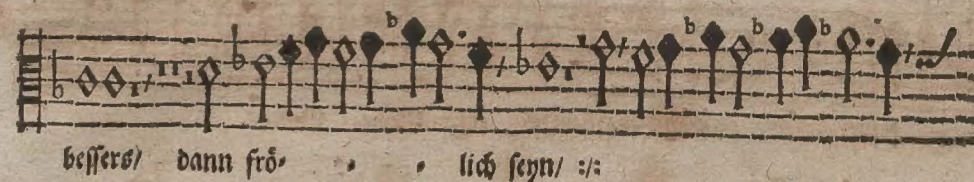 beſſers/ dann frö⸗ ⸗ ⸗ lich ſeyn/ :/: